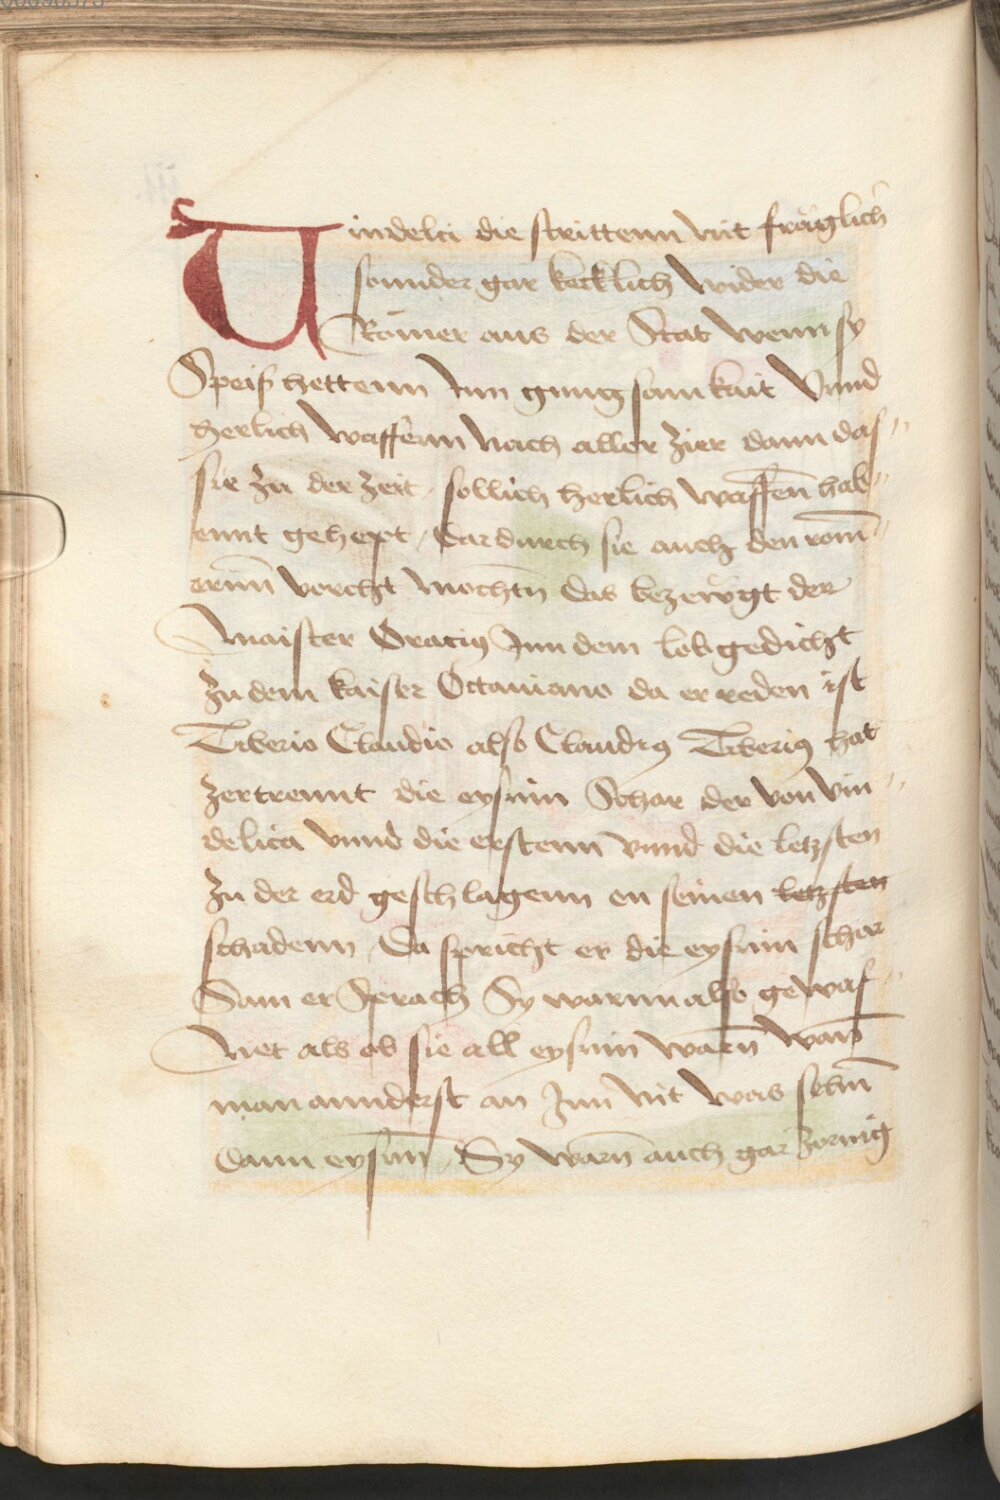 Vindelici die strittenn nit fräglich
sonnder gar kecklich wider die
Römer aus der Stat wenn sy
Speiß hettenn Inn gnugsamkait Vnnd
herlich waffenn nach aller zier dann das
sie zu der zeit / sollich herlich waffen̄ hab
ennt gehept / Dardurch sie auch den rom̄
ernn̄ vorcht mochtn̄ das bezewgt der
Maister Oracius Inn dem lobgedicht
zu dem kaiser Octaviano da er reden ist
Tiberio Claudio also Claudius Tiberius hat
zertrennt die eysnin Schar der von vin
delica vnnd die erstenn vnnd die letzsten
zu der erd geschlagenn on seinen letzsten
schadenn / Da spricht er die eysnin schar
Sam er sprach Sy warnn also gewaf
Net als ob sie all eysnin warn̄ wan̄
man annderst an Inn̄ nit was sehn̄
dann eysnn̄ / Sy warn̄ auch gar zornig